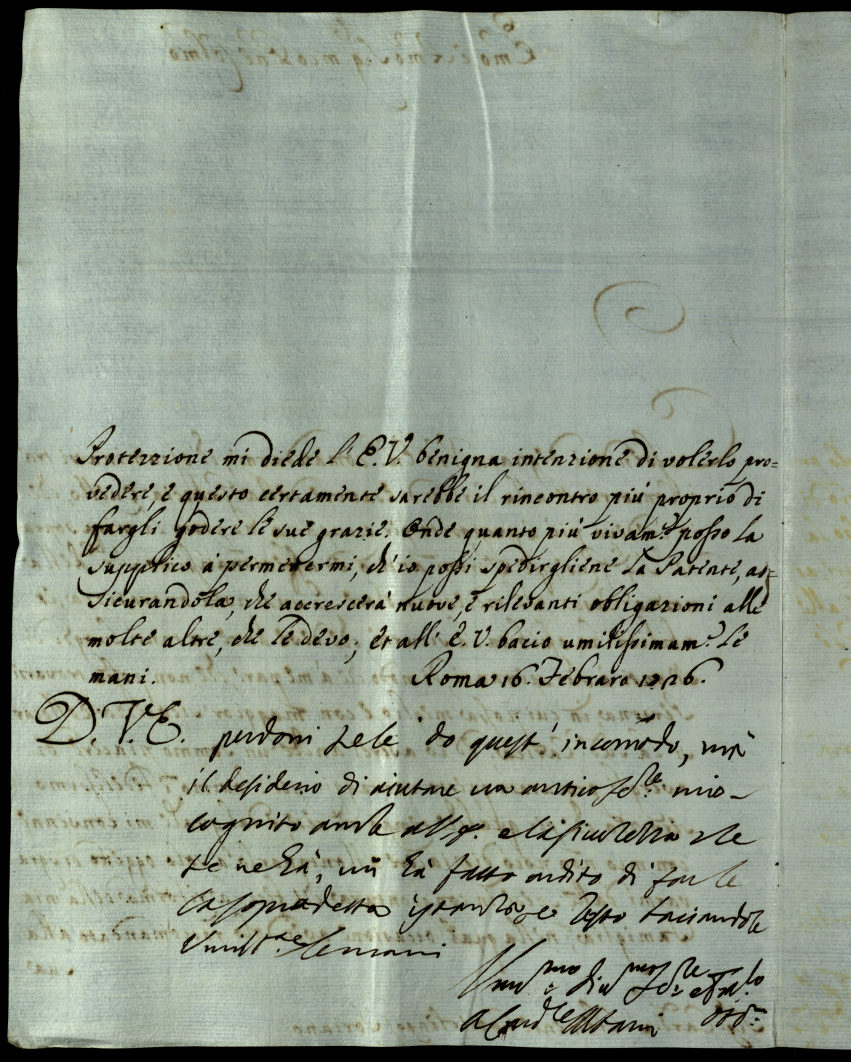 Protezzione mi diede l'E.V. benigna intenzione di volerlo pro=
vedere, e questo certamente sarebbe il rincontro più proprio di
fargli godere le sue grazie. Onde quanto più vivam.te posso La
supplico à permetermi, ch'io possi spedirgliene La Patente, as=
sicurandola, che accrescerà nuove, e rilevanti obligazioni alle
molte altre, che Le devo; et all' E.V. bacio umilissimam.te Le
mani. Roma 16. Febraro 1726.
D. V. E. perdoni se le do quest' incommodo, mà
il desiderio di aiutare un antico ser.re mio
cognito anche all' e la che
se ne hà, mi hà fatto ardito di farle
la sopradetta istanza e resto baciandole
umilm.te le mani
Um.mo Div.mo Ser.re
A Card.le Albani